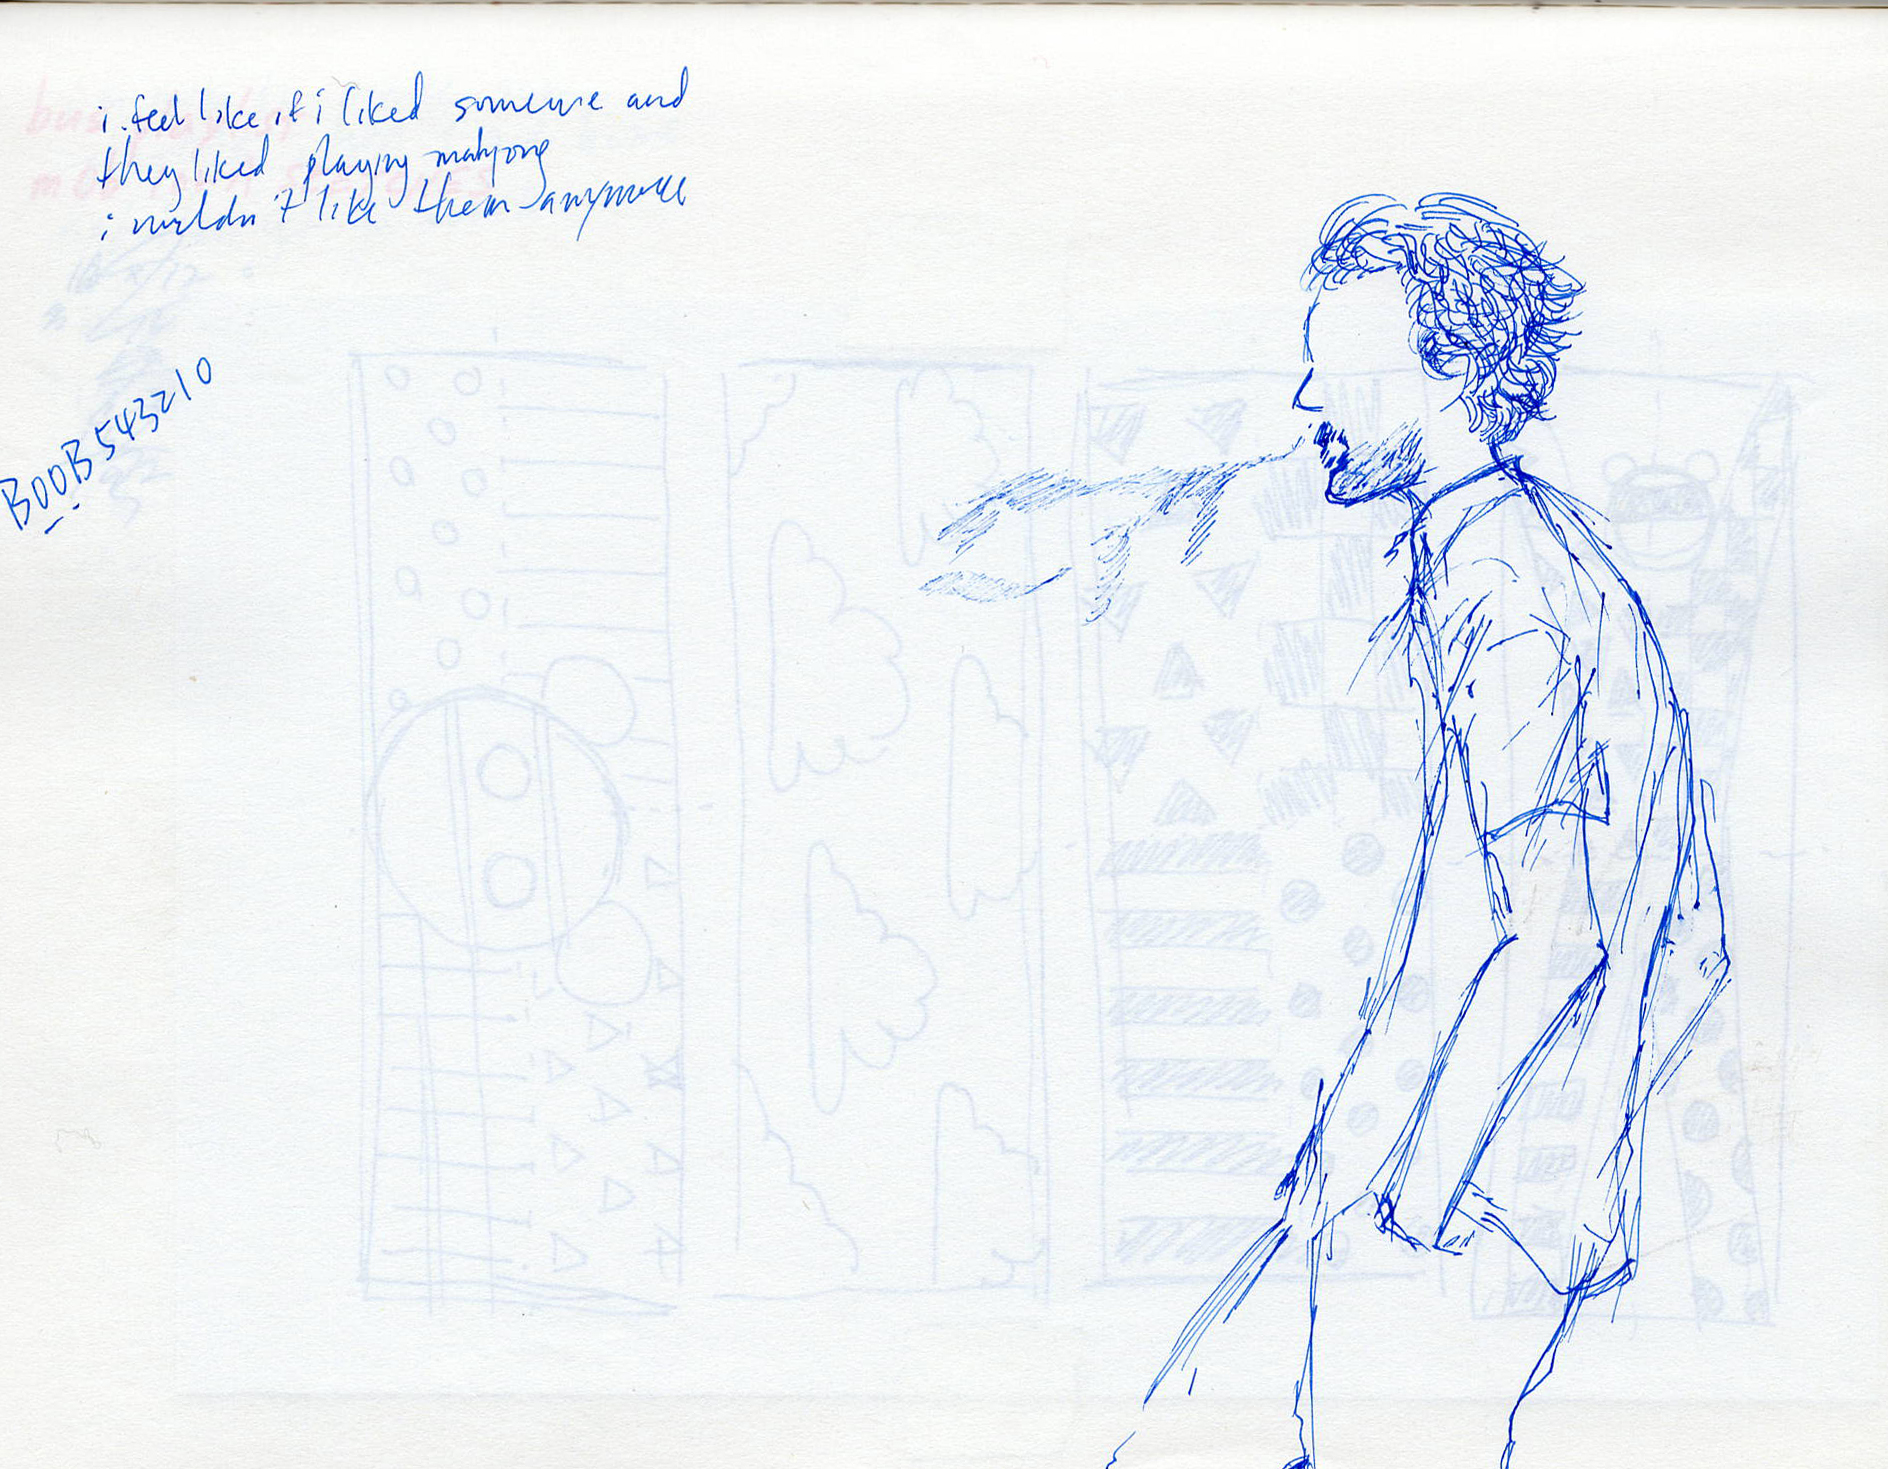 i feel like if i liked someone and
they liked playing mahjong
i wouldn't like them anymore
BOOB543210